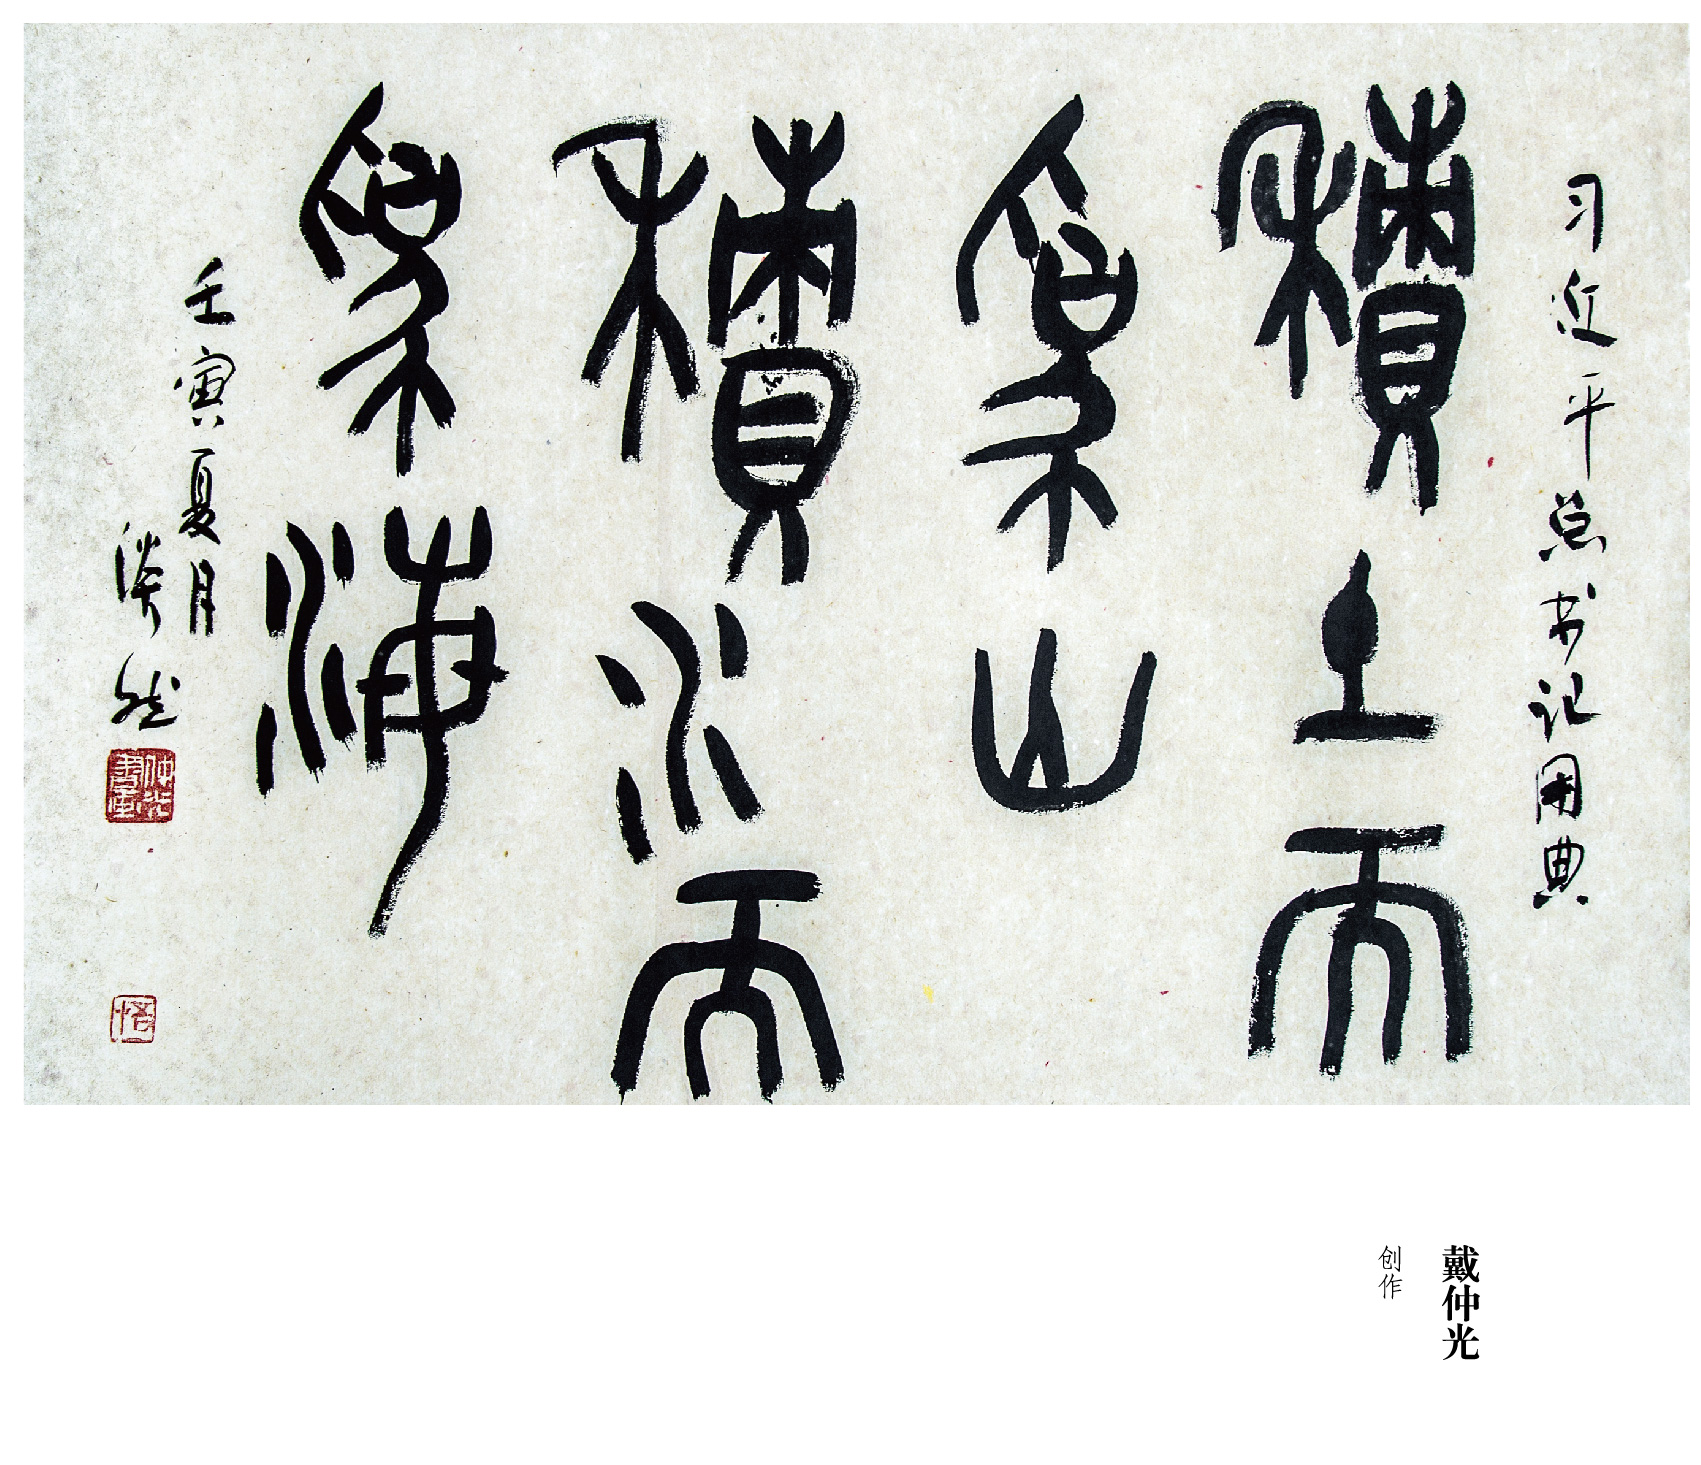 习近平总书记用典
積土而
爲山
積水而
爲海
壬寅夏月
淡然
仲光書畫
悟
戴仲光
创作